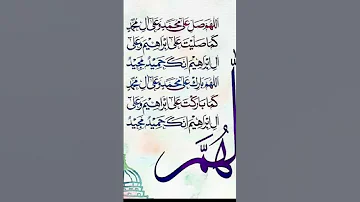 اللهم صل على محمد وعلى آل محمد
كما صليت على إبراهيم وعلى
آل إبراهيم إنك حميد مجيد
اللهم بارك على محمد وعلى آل محمد
كما باركت على إبراهيم وعلى
آل إبراهيم إنك حميد مجيد